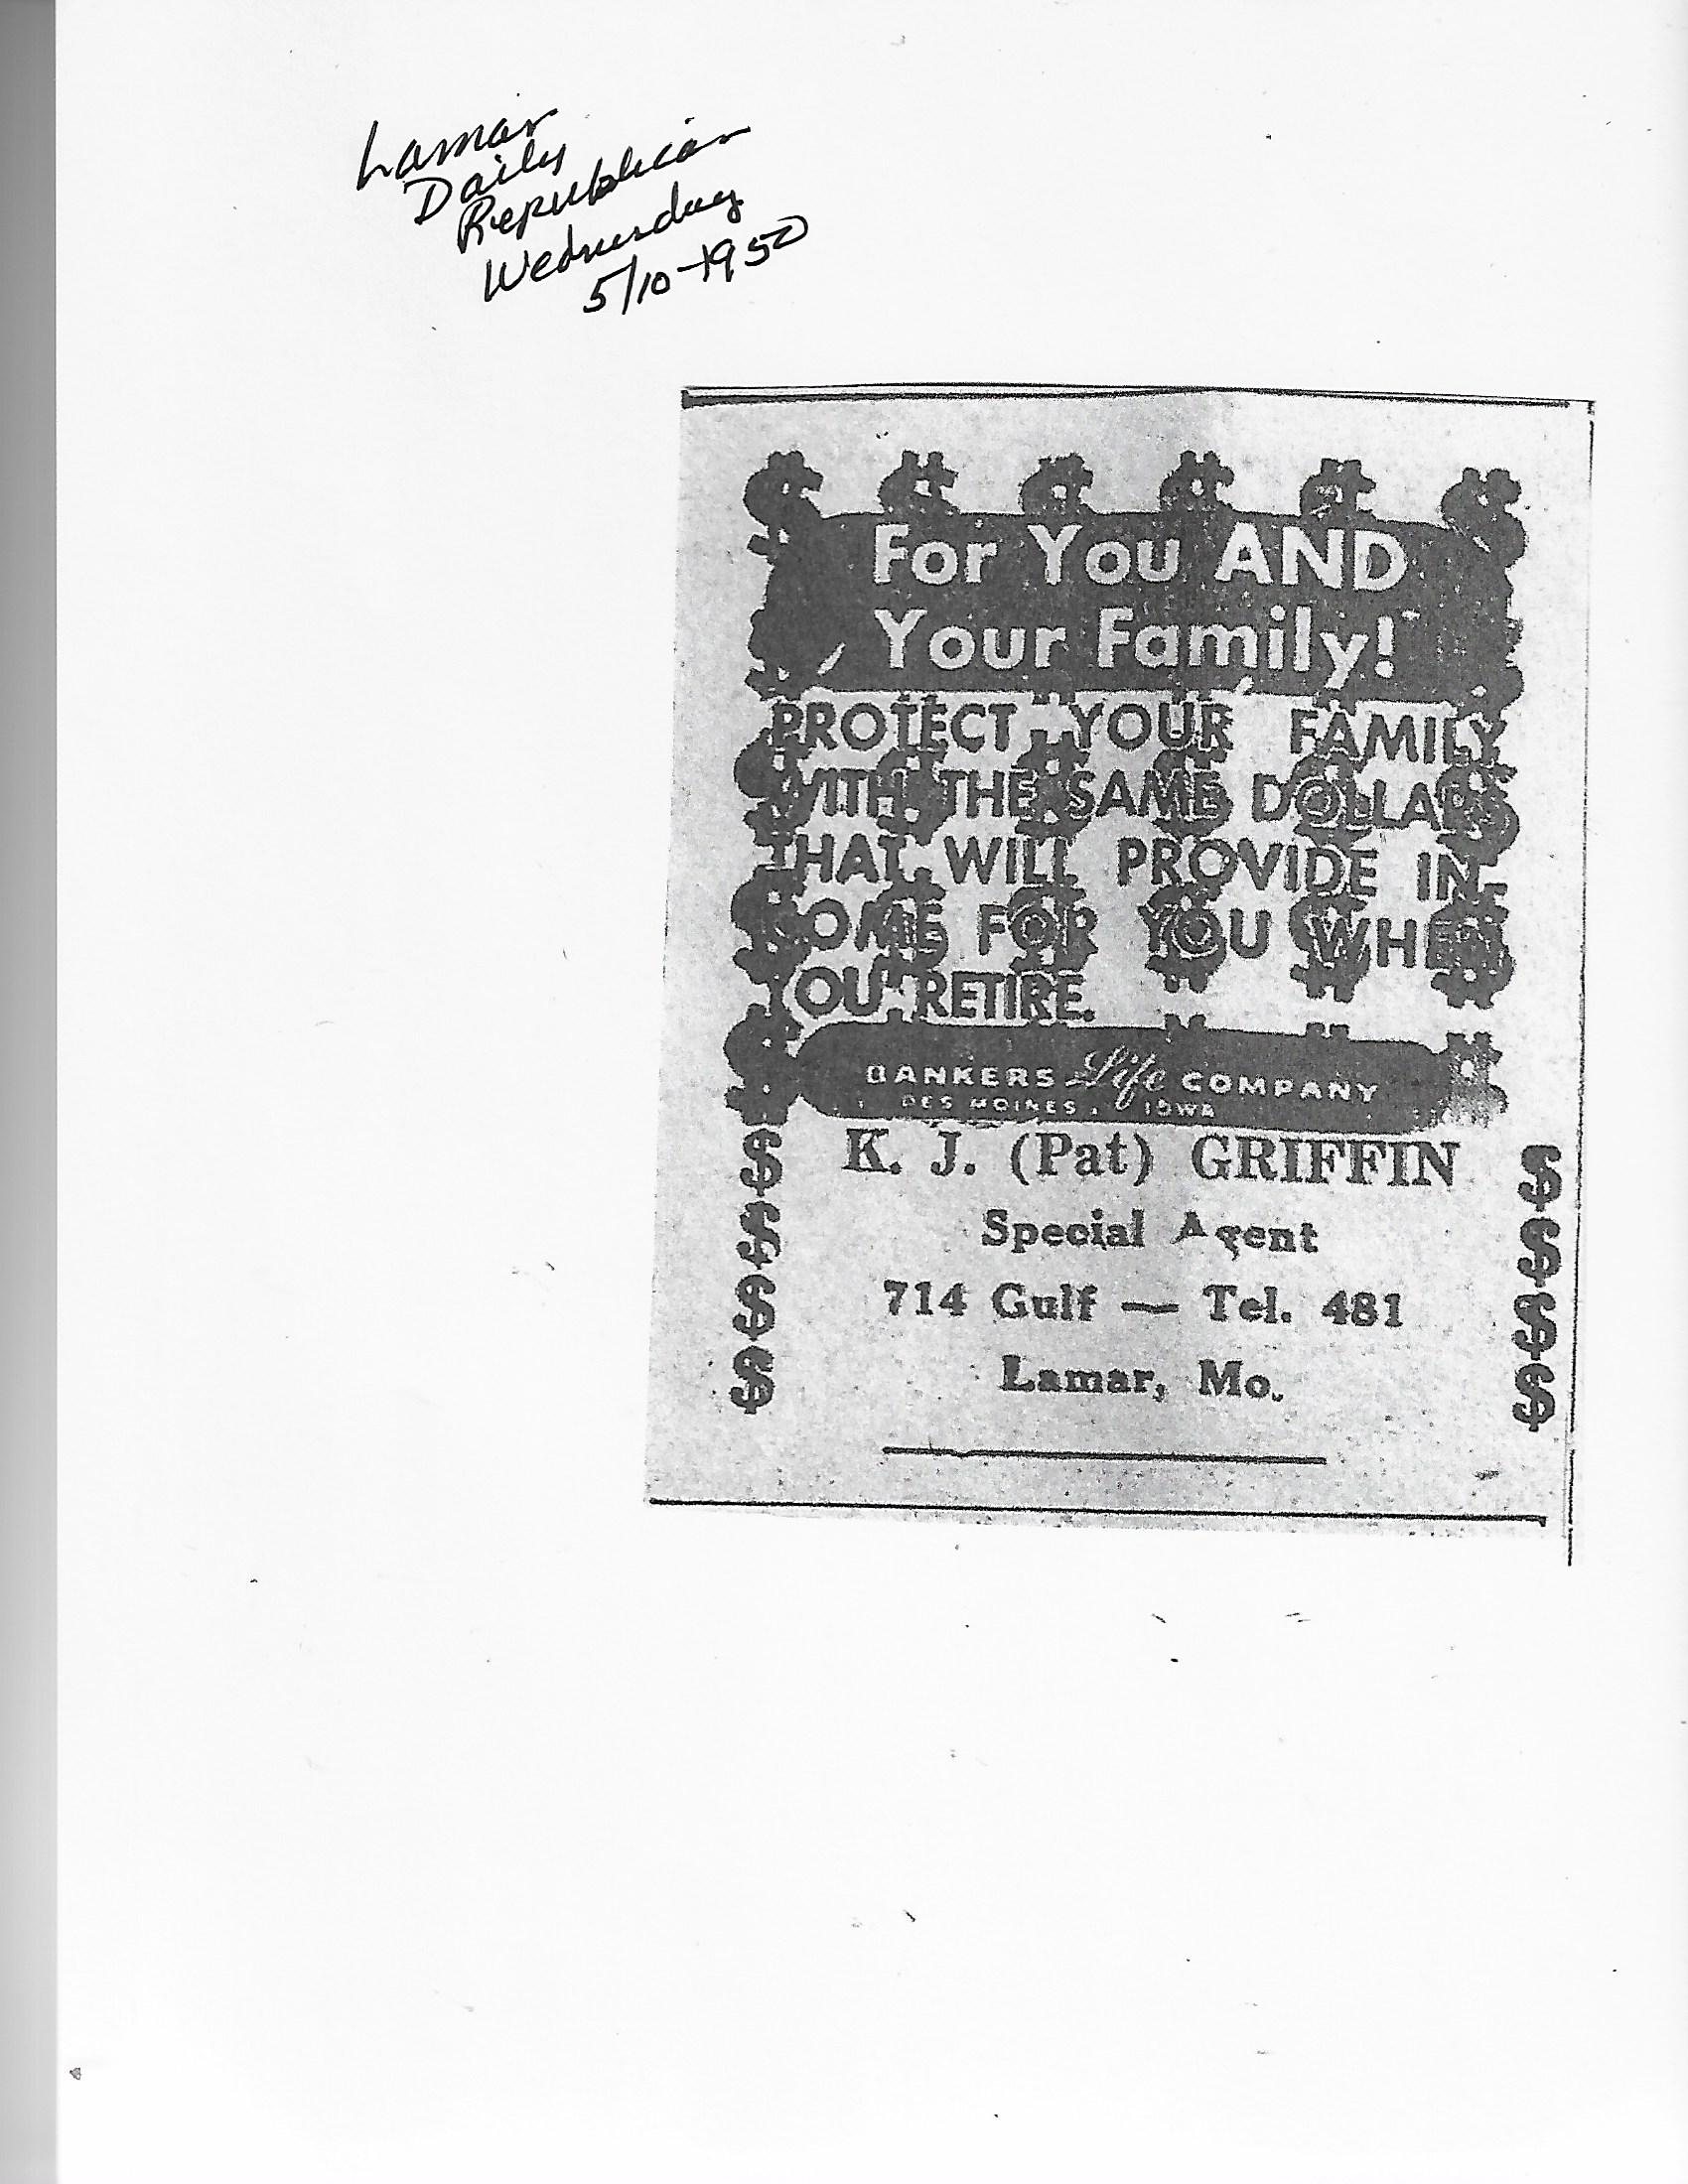 Lamar
Daily
Republican
Wednesday
5/10-1950
For You AND
Your Family!
PROTECT YOUR FAMILY
WITH THE SAME DOLLARS
THAT WILL PROVIDE IN-
COME FOR YOU WHEN
YOU RETIRE.
BANKERS Life COMPANY
DES MOINES, IOWA
$ K. J. (Pat) GRIFFIN $
$ Special Agent $
$ 714 Gulf — Tel. 481 $
$ Lamar, Mo. $